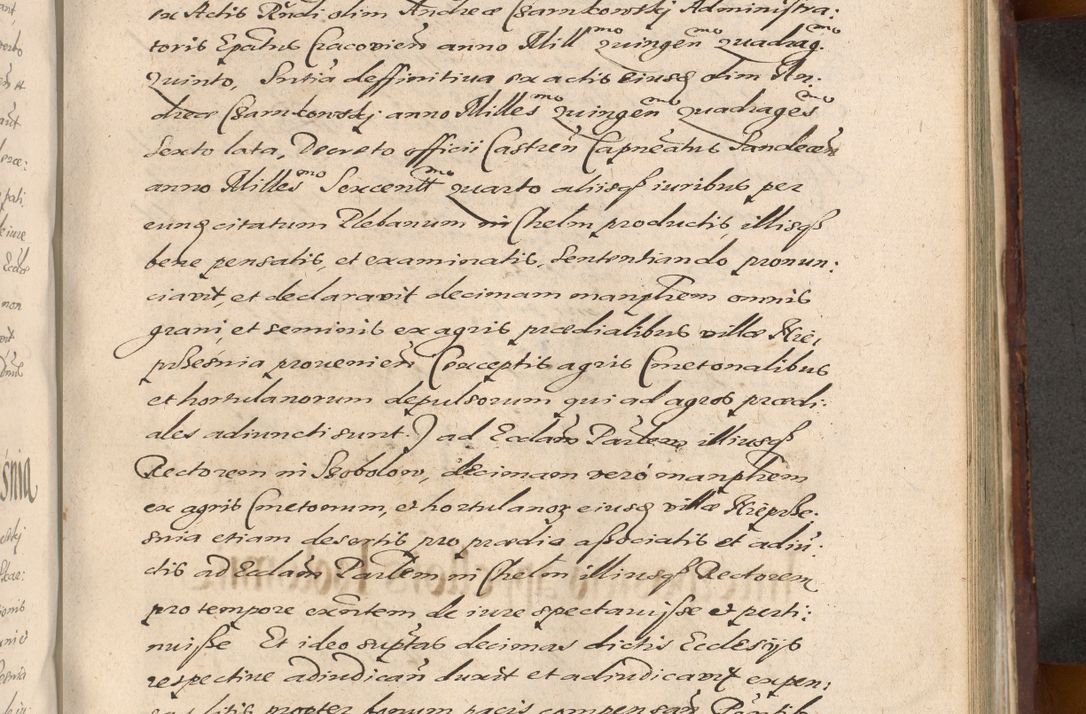 ex Actis Rndi olim Andreæ Czarnkowskj Administra:
toris Epatus Cracovien̄ anno Mill mo quingen mo quadrag mo
quinto, Sntia deffinitiua ex actis eiusq olim An:
dreæ Czarnkowskj anno Milles mo quingen mo quadrages mo
sexto lata, Decreto officii Castren̄ Capneatus Sandecen̄
anno Milles mo Sexcentt mo quarto aliisqß iuribus per
eunq citatum Plebanum in Chelm productis, illisqß
bene pensatis, et examinatis, Sententiando pronun:
ciavit, et declaravit decimam maniplem omnis
grani, et seminis ex agris prædialibus villæ Krze,
provenien̄ (exceptis agris Cmetonalibus
et hortulanorum depulsorum qui ad agros prædi:
ales adiuncti sunt.) ad Ecclam Parlem illiusqß
Rectorem in Szobolow, decimam verò maniplem
ex agris Cmetonum, et hortulanoꝝ eiusq villæ Krepsze:
snia etiam desertis pro prædio aßociatis et adiū:
ctis ad Ecclam Parlem in Chelm illiusqß Rectorem
pro tempore exntem de iure spectavisse et perti:
nuiße Et ideo suptas decimas dictis Ecclesijs
respective adiudican̄ duxit et adiudicavit expen:
sas litis propter bonum pacis compensan̄ Partib